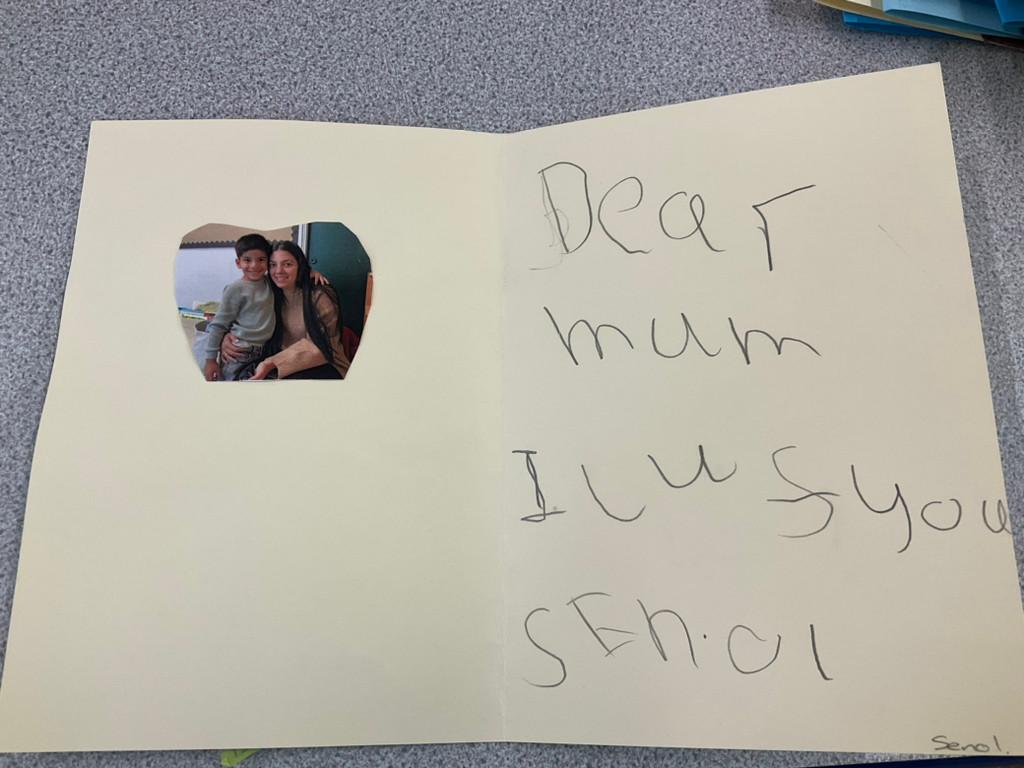 Dear
mum
I lu f you
SEnol
Senol.